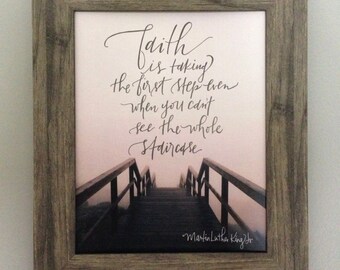 Faith
is taking
the first step even
when you can't
see the whole
staircase
Martin Luther King Jr